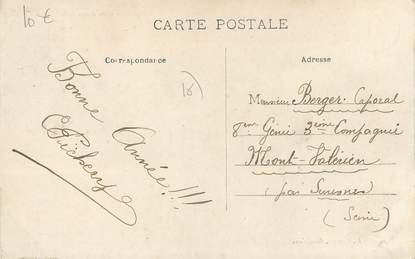 10 €
CARTE POSTALE
Correspondance
Adresse
18
Bonne
Année!!!!
Monsieur Berger. Caporal
8ème Génie 3ème Compagnie
Mont-Valérien
(par Suresnes
(Seine)